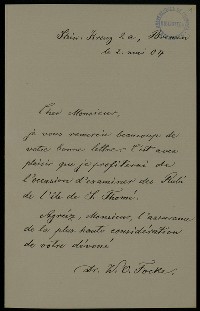 Stein-Kreuz 2a, Bremen
le 2. mai 04
Cher Monsieur,
je vous remercie beaucoup de
votre bonne lettre. C'est avec
plaisir que je profiterai de
l'occasion d'examiner des Rubi
de l'île de S. Thomé.
Agréez, Monsieur, l'assurance
de la plus haute considération
de votre dévoué
Dr. W. O. Focke.